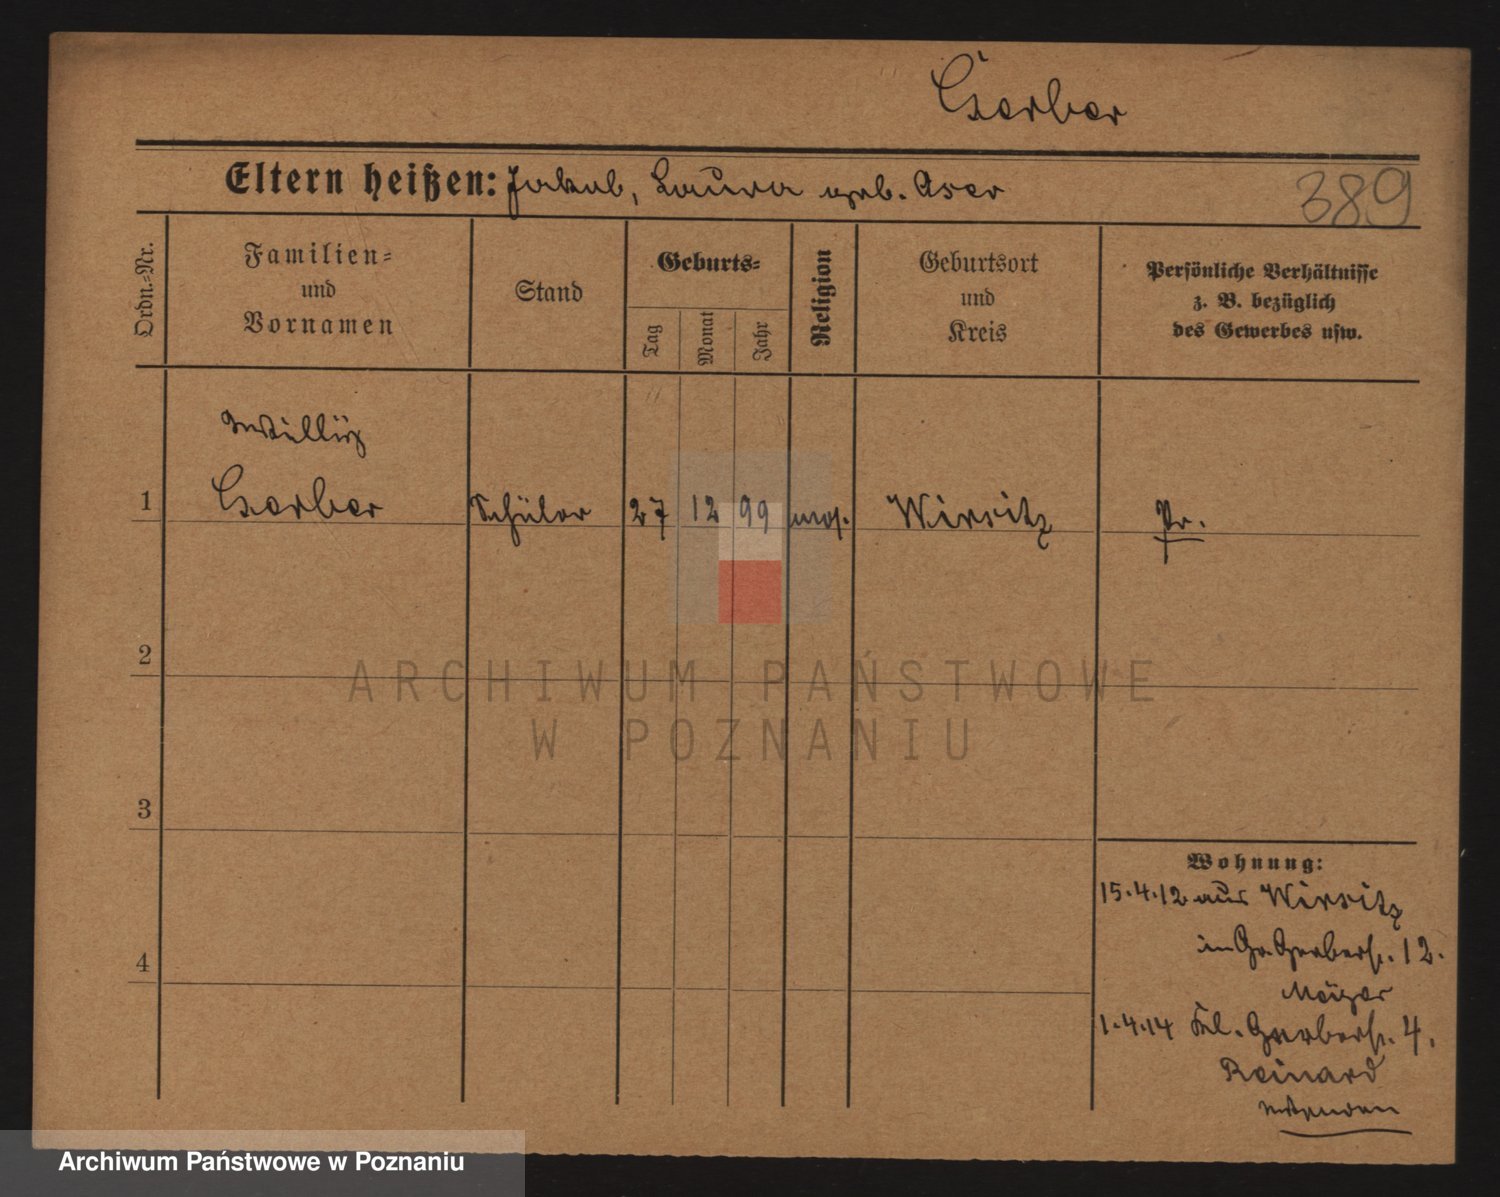 Gerber
Eltern heißen: Jakob, Laura geb. Aser
389
Ordn.-Nr.
Familien-
und
Vornamen
Stand
Geburts-
Tag
Monat
Jahr
Religion
Geburtsort
und
Kreis
Persönliche Verhältnisse
z. B. bezüglich
des Gewerbes usw.
1
Gerber
Schüler
27
12
99
mos.
Wirsitz
Pr.
2
3
4
Wohnung:
15.4.12 aus Wirsitz
in Gr. Gerberstr. 12.
1.4.14 Kl. Gerberstr. 4.
Reinard
ARCHIWUM PAŃSTWOWE
W POZNANIU
Archiwum Państwowe w Poznaniu